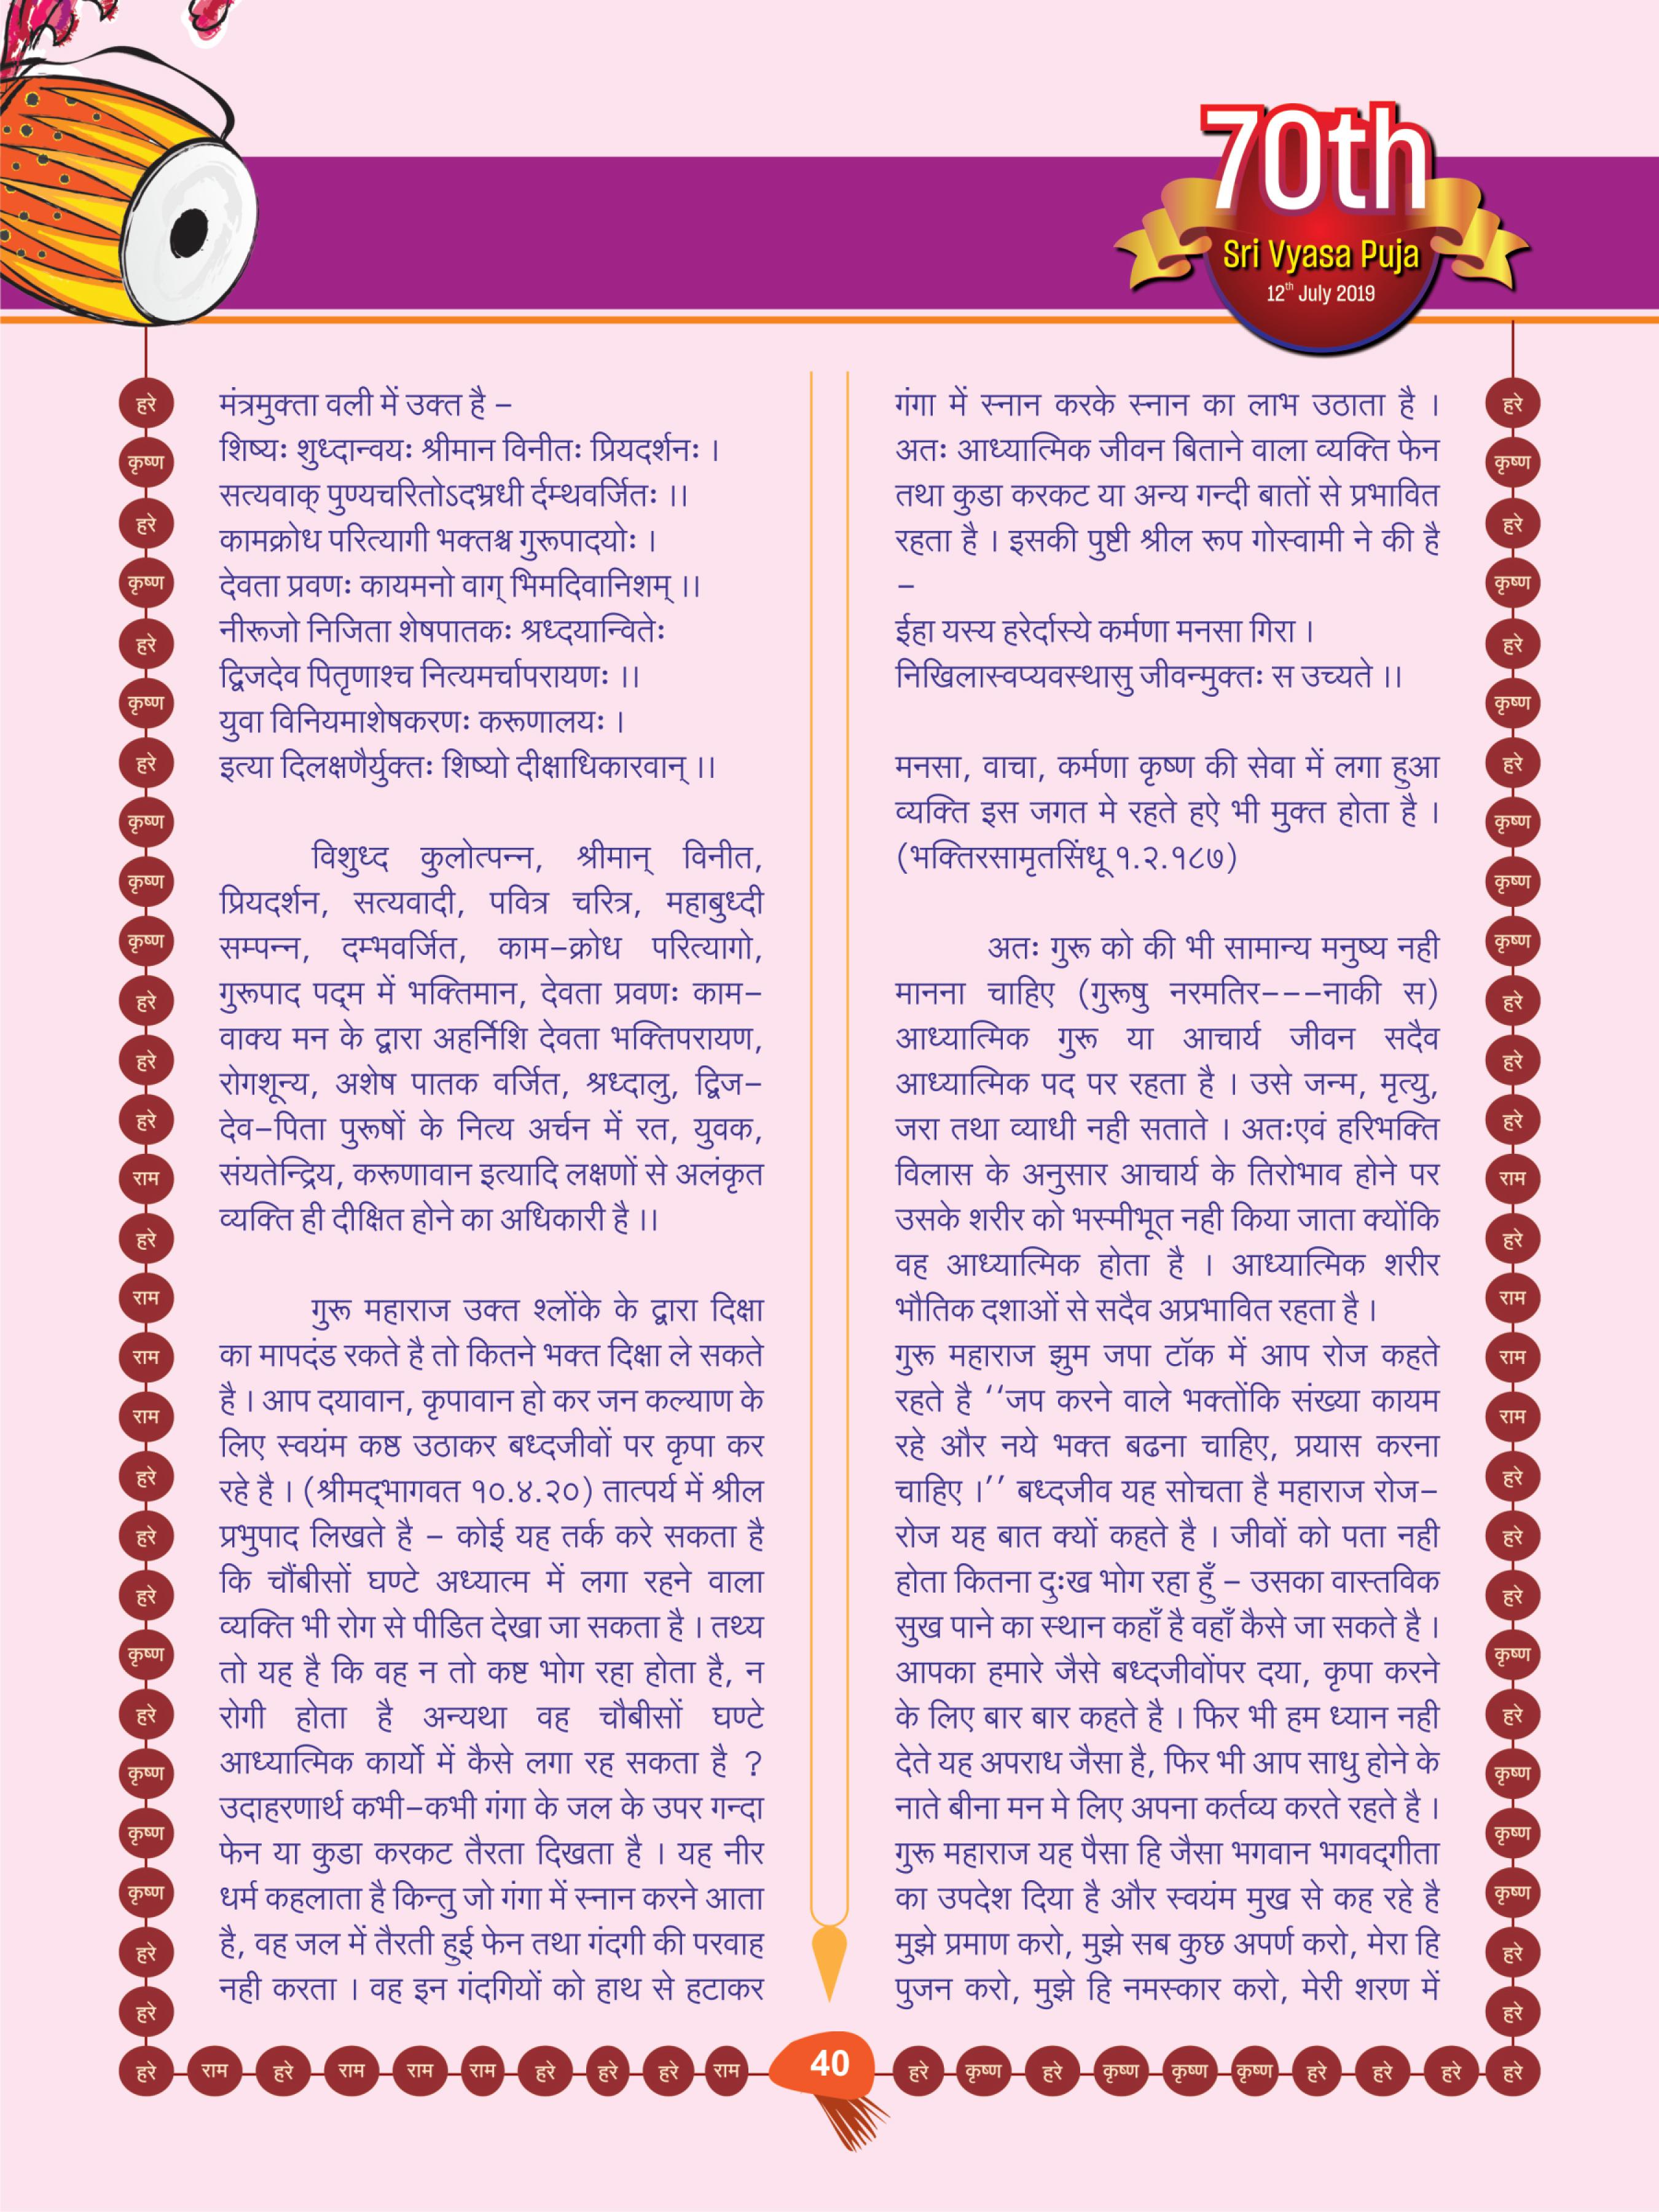 70th
Sri Vyasa Puja
12th July 2019
मंत्रमुक्ता वली में उक्त है –
शिष्यः शुध्दान्वयः श्रीमान विनीतः प्रियदर्शनः ।
सत्यवाक् पुण्यचरितोऽदभ्रधी र्दम्थवर्जितः ।।
कामक्रोध परित्यागी भक्तश्च गुरूपादयोः ।
देवता प्रवणः कायमनो वाग् भिमदिवानिशम् ।।
नीरूजो निजिता शेषपातकः श्रध्दयान्वितेः
द्विजदेव पितृणाश्च नित्यमर्चापरायणः ।।
युवा विनियमाशेषकरणः करूणालयः ।
इत्या दिलक्षणैर्युक्तः शिष्यो दीक्षाधिकारवान् ।।
विशुध्द कुलोत्पन्न, श्रीमान् विनीत,
प्रियदर्शन, सत्यवादी, पवित्र चरित्र, महाबुध्दी
सम्पन्न, दम्भवर्जित, काम–क्रोध परित्यागो,
गुरूपाद पद्म में भक्तिमान, देवता प्रवणः काम–
वाक्य मन के द्वारा अहर्निशि देवता भक्तिपरायण,
रोगशून्य, अशेष पातक वर्जित, श्रध्दालु, द्विज–
देव–पिता पुरूषों के नित्य अर्चन में रत, युवक,
संयतेन्द्रिय, करूणावान इत्यादि लक्षणों से अलंकृत
व्यक्ति ही दीक्षित होने का अधिकारी है ।।
गुरू महाराज उक्त श्लोंके के द्वारा दिक्षा
का मापदंड रकते है तो कितने भक्त दिक्षा ले सकते
है । आप दयावान, कृपावान हो कर जन कल्याण के
लिए स्वयंम कष्ठ उठाकर बध्दजीवों पर कृपा कर
रहे है । (श्रीमद्‌भागवत १०.४.२०) तात्पर्य में श्रील
प्रभुपाद लिखते है – कोई यह तर्क करे सकता है
कि चौंबीसों घण्टे अध्यात्म में लगा रहने वाला
व्यक्ति भी रोग से पीडित देखा जा सकता है । तथ्य
तो यह है कि वह न तो कष्ट भोग रहा होता है, न
रोगी होता है अन्यथा वह चौबीसों घण्टे
आध्यात्मिक कार्यो में कैसे लगा रह सकता है ?
उदाहरणार्थ कभी–कभी गंगा के जल के उपर गन्दा
फेन या कुडा करकट तैरता दिखता है । यह नीर
धर्म कहलाता है किन्तु जो गंगा में स्नान करने आता
है, वह जल में तैरती हुई फेन तथा गंदगी की परवाह
नही करता । वह इन गंदगियों को हाथ से हटाकर
गंगा में स्नान करके स्नान का लाभ उठाता है ।
अतः आध्यात्मिक जीवन बिताने वाला व्यक्ति फेन
तथा कुडा करकट या अन्य गन्दी बातों से प्रभावित
रहता है । इसकी पुष्टी श्रील रूप गोस्वामी ने की है
–
ईहा यस्य हरेर्दास्ये कर्मणा मनसा गिरा ।
निखिलास्वप्यवस्थासु जीवन्मुक्तः स उच्यते ।।
मनसा, वाचा, कर्मणा कृष्ण की सेवा में लगा हुआ
व्यक्ति इस जगत मे रहते हऐ भी मुक्त होता है ।
(भक्तिरसामृतसिंधू १.२.१८७)
अतः गुरू को की भी सामान्य मनुष्य नही
मानना चाहिए (गुरूषु नरमतिर–––नाकी स)
आध्यात्मिक गुरू या आचार्य जीवन सदैव
आध्यात्मिक पद पर रहता है । उसे जन्म, मृत्यु,
जरा तथा व्याधी नही सताते । अतःएवं हरिभक्ति
विलास के अनुसार आचार्य के तिरोभाव होने पर
उसके शरीर को भस्मीभूत नही किया जाता क्योंकि
वह आध्यात्मिक होता है । आध्यात्मिक शरीर
भौतिक दशाओं से सदैव अप्रभावित रहता है ।
गुरू महाराज झुम जपा टॉक में आप रोज कहते
रहते है ‘‘जप करने वाले भक्तोंकि संख्या कायम
रहे और नये भक्त बढना चाहिए, प्रयास करना
चाहिए ।’’ बध्दजीव यह सोचता है महाराज रोज–
रोज यह बात क्यों कहते है । जीवों को पता नही
होता कितना दुःख भोग रहा हूँ – उसका वास्तविक
सुख पाने का स्थान कहाँ है वहाँ कैसे जा सकते है ।
आपका हमारे जैसे बध्दजीवोंपर दया, कृपा करने
के लिए बार बार कहते है । फिर भी हम ध्यान नही
देते यह अपराध जैसा है, फिर भी आप साधु होने के
नाते बीना मन मे लिए अपना कर्तव्य करते रहते है ।
गुरू महाराज यह पैसा हि जैसा भगवान भगवद्‌गीता
का उपदेश दिया है और स्वयंम मुख से कह रहे है
मुझे प्रमाण करो, मुझे सब कुछ अपर्ण करो, मेरा हि
पुजन करो, मुझे हि नमस्कार करो, मेरी शरण में
हरे
कृष्ण
हरे
कृष्ण
हरे
कृष्ण
हरे
कृष्ण
कृष्ण
कृष्ण
हरे
हरे
हरे
राम
हरे
राम
राम
राम
हरे
हरे
हरे
कृष्ण
हरे
कृष्ण
कृष्ण
कृष्ण
हरे
हरे
हरे
कृष्ण
हरे
कृष्ण
हरे
कृष्ण
हरे
कृष्ण
कृष्ण
कृष्ण
हरे
हरे
हरे
राम
हरे
राम
राम
राम
हरे
हरे
हरे
कृष्ण
हरे
कृष्ण
कृष्ण
कृष्ण
हरे
हरे
हरे राम हरे राम राम राम हरे हरे हरे राम 40 हरे कृष्ण हरे कृष्ण कृष्ण कृष्ण हरे हरे हरे हरे